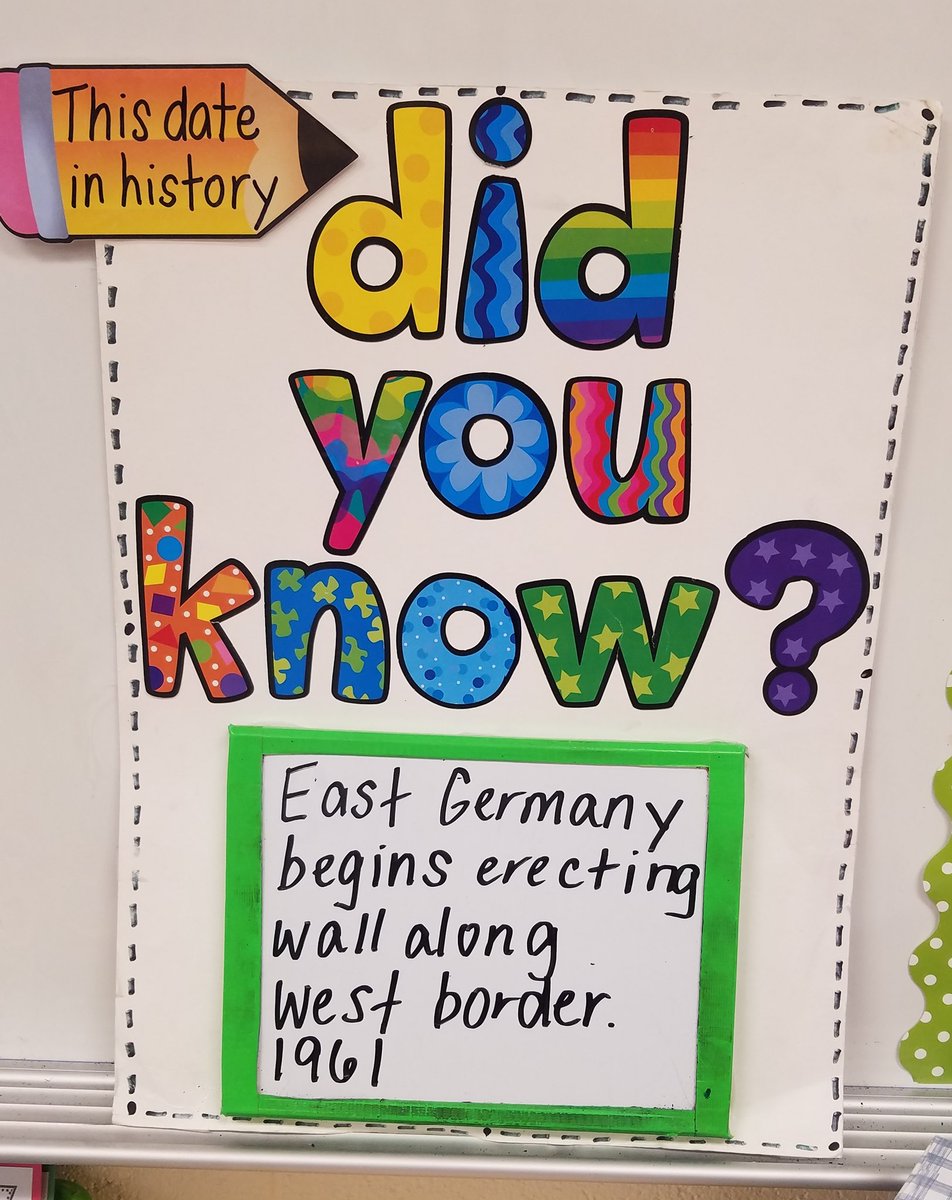 This date
in history
did
you
know?
East Germany
begins erecting
wall along
west border.
1961